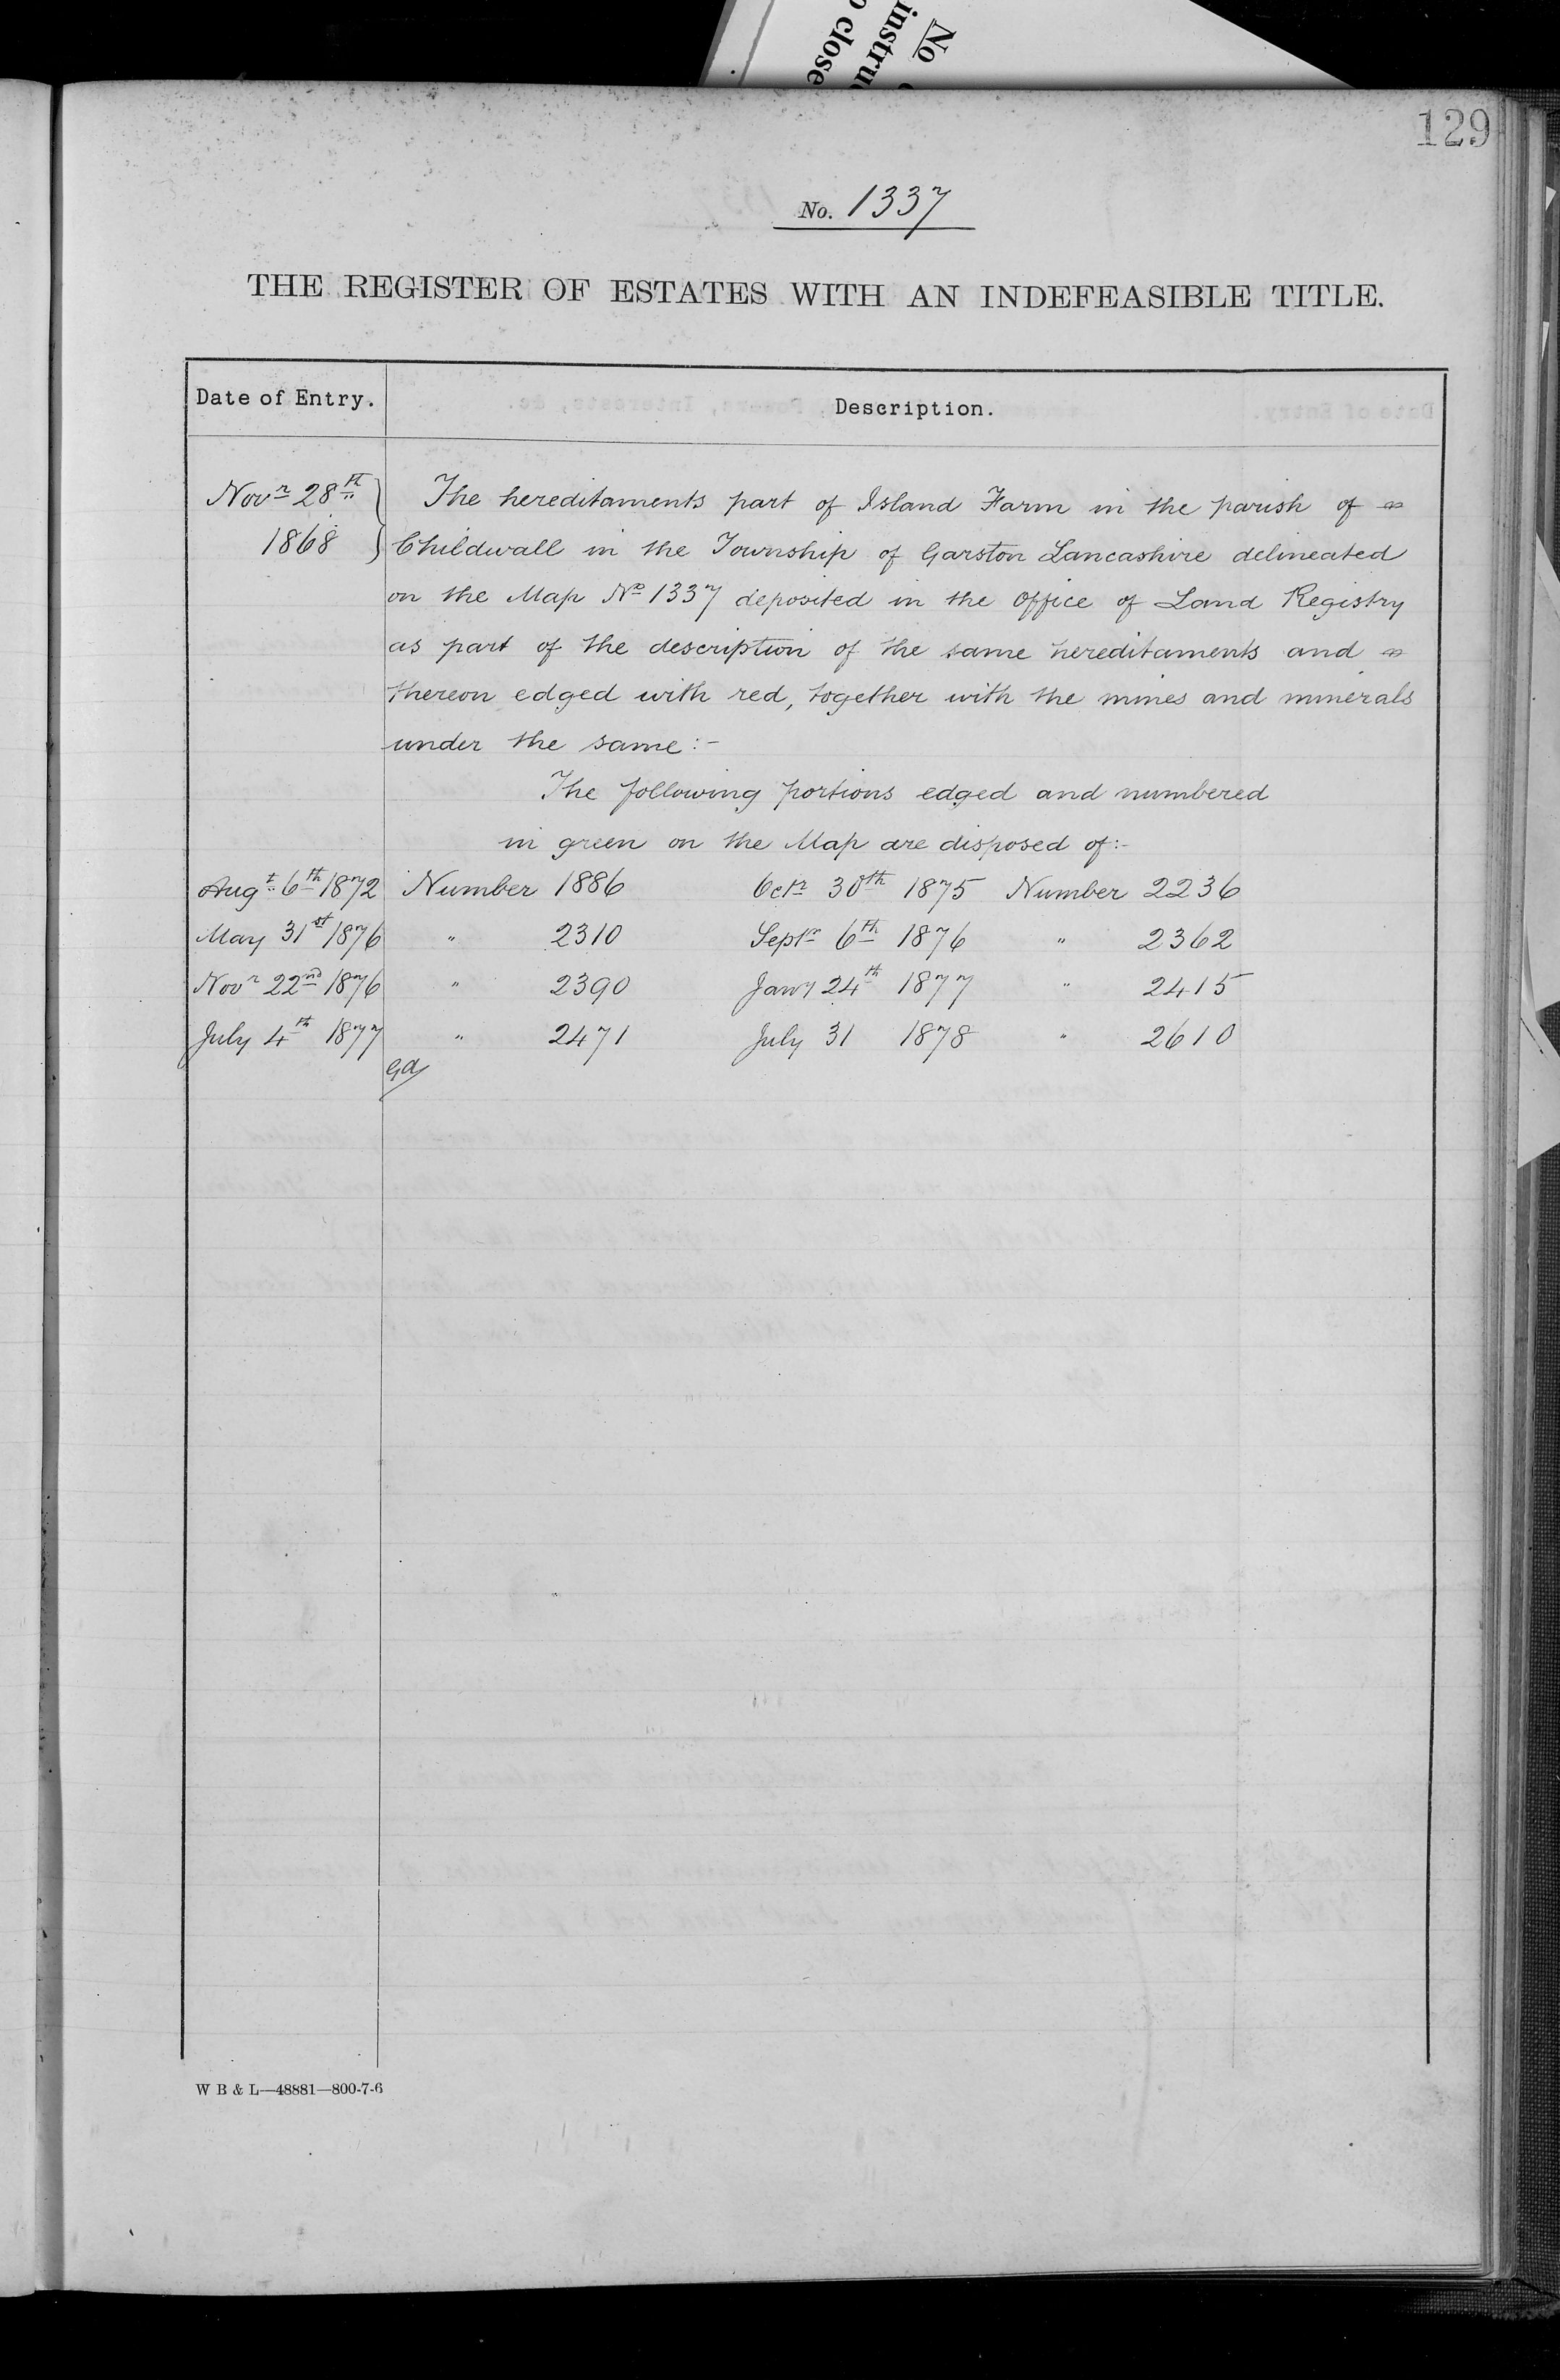 No
instru
o close
129
No. 1337
THE REGISTER OF ESTATES WITH AN INDEFEASIBLE TITLE.
Date of Entry. Description.
Novr 28th The hereditaments part of Island Farm in the parish of
1868 Childwall in the Township of Garston Lancashire delineated
on the Map No 1337 deposited in the office of Land Registry
as part of the description of the same hereditaments and
thereon edged with red, together with the mines and minerals
under the same:-
The following portions edged and numbered
in green on the Map are disposed of:-
Augt 6th 1872 Number 1886 Octr 30th 1875 Number 2236
May 31st 1876 " 2310 Septr 6th 1876 " 2362
Novr 22nd 1876 " 2390 Jany 24th 1877 " 2415
July 4th 1877 " 2471 July 31 1878 " 2610
W B & L—48881—800-7-6